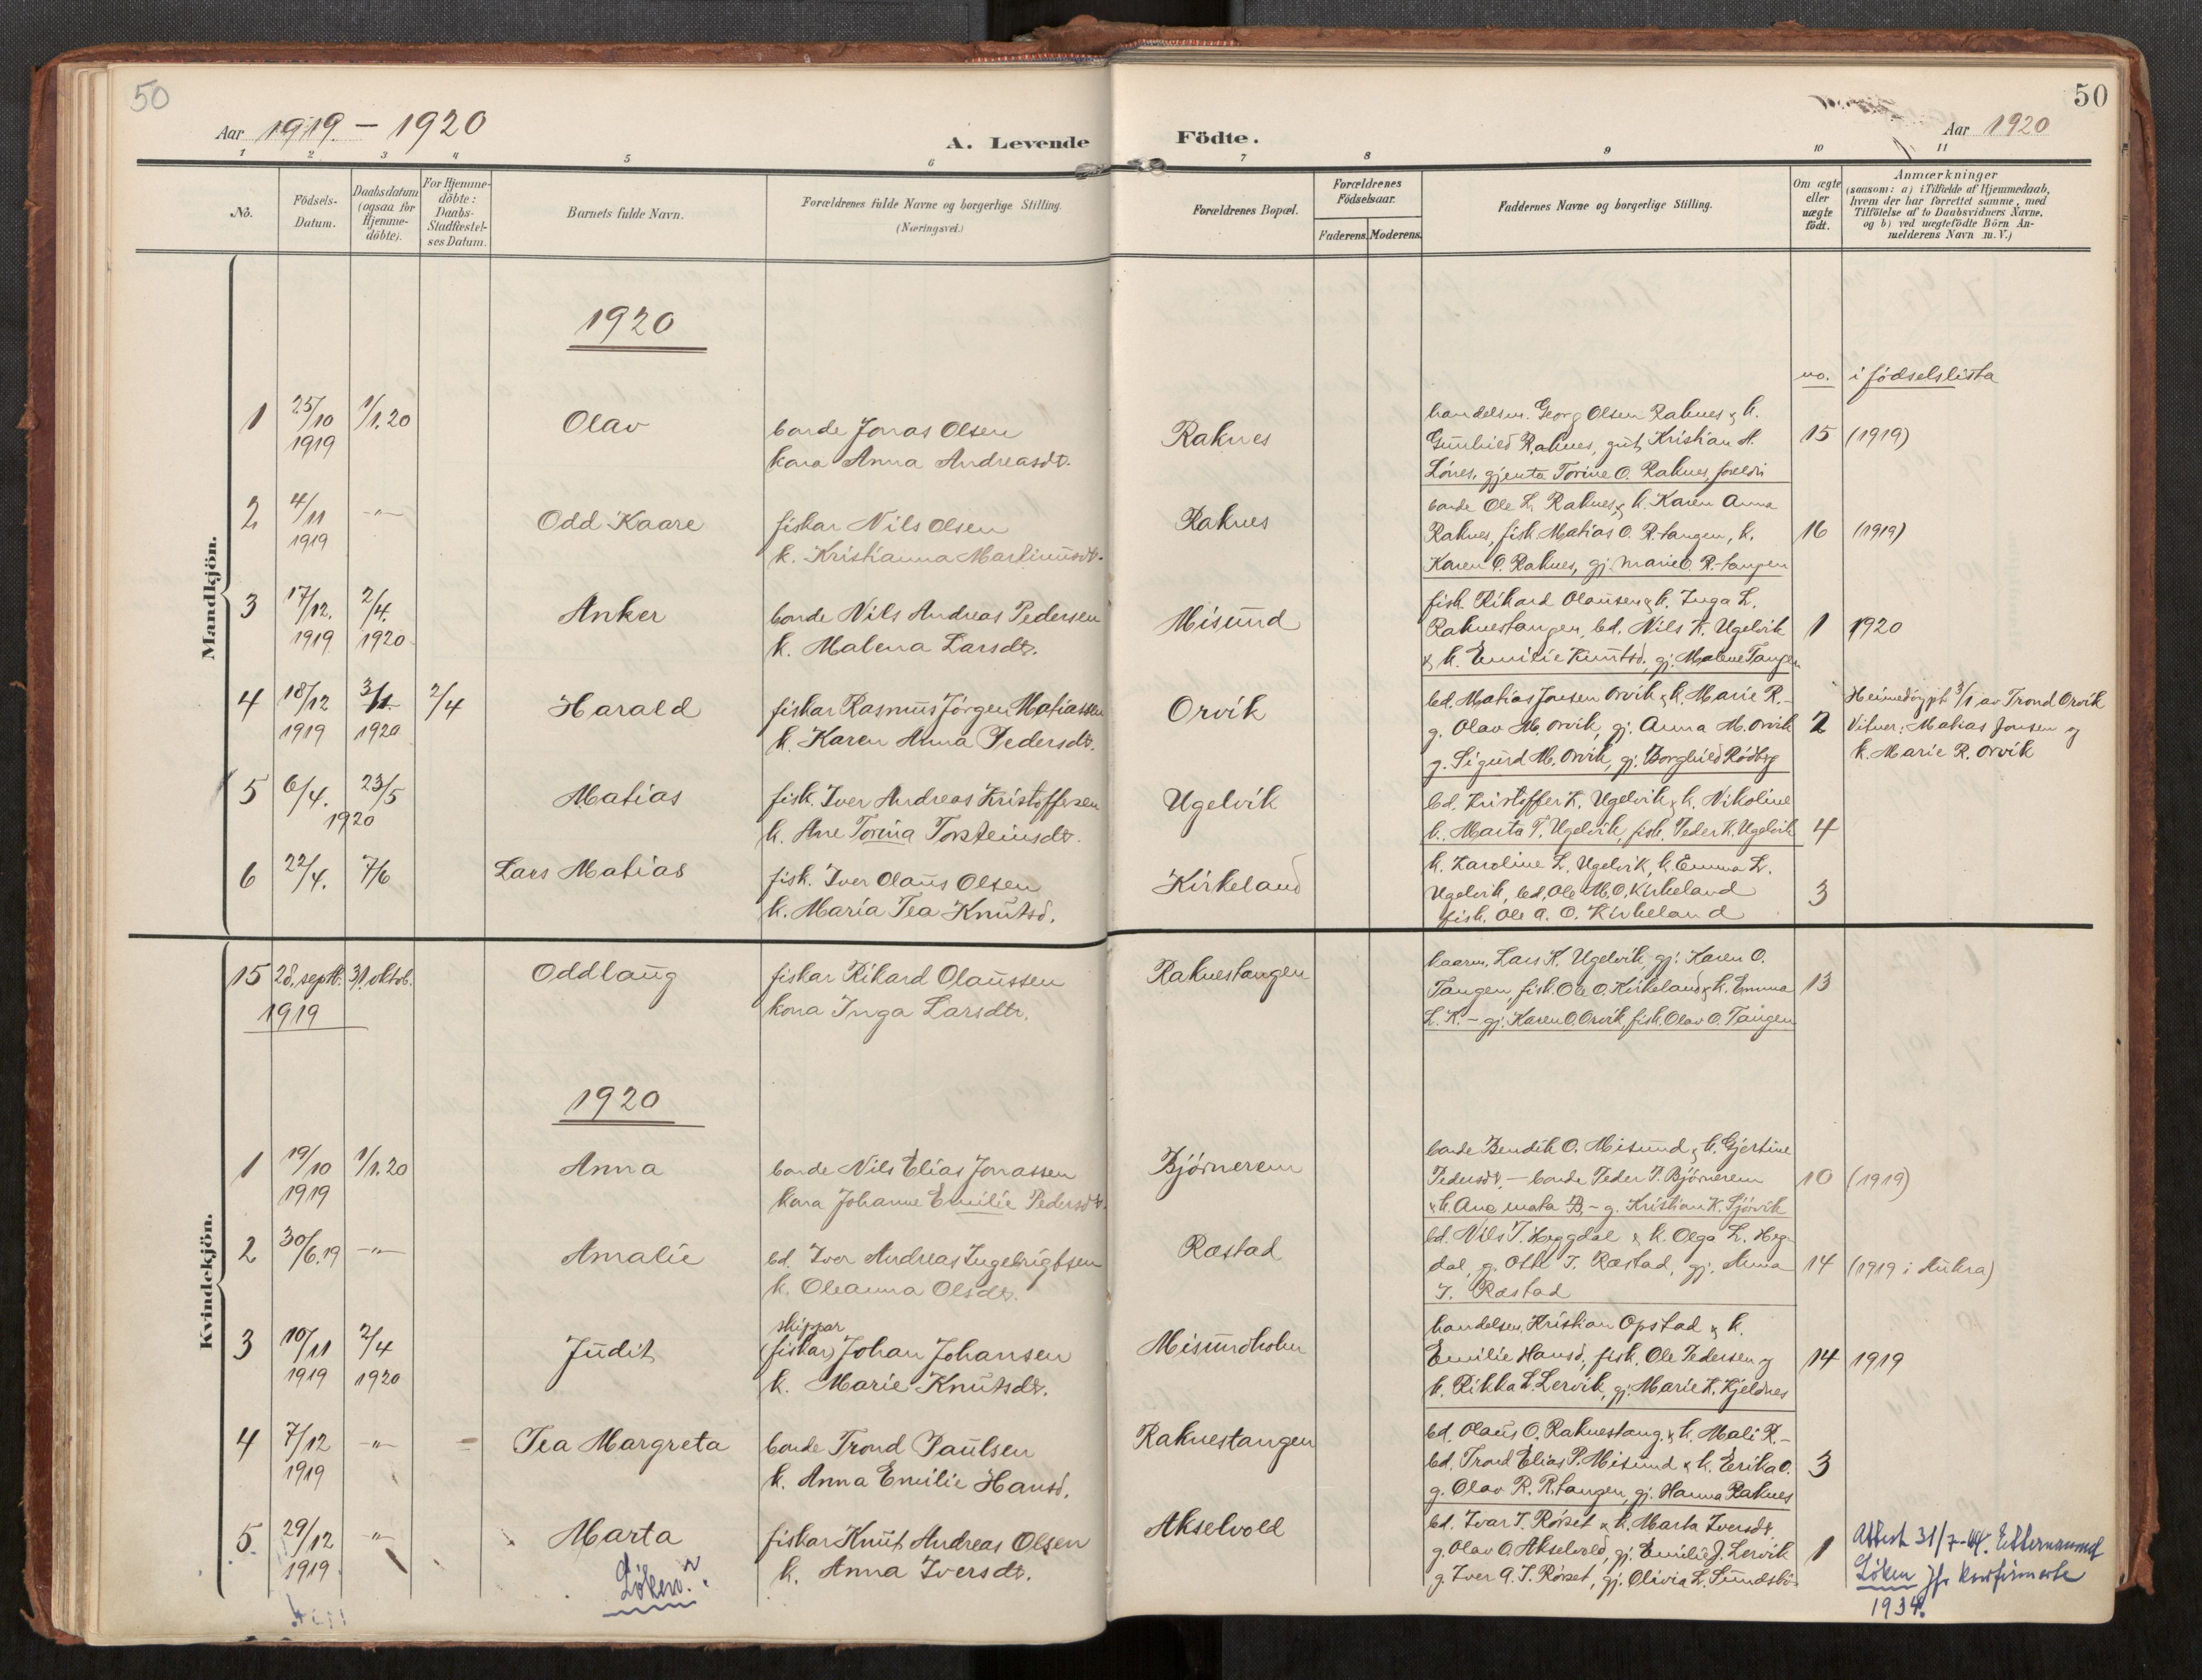 50
Aar 1919 - 1920
A. Levende
Födte.
50
Aar 1920
1 2 3 4 5 6
7 8 9 10 11
No.
Födsels-
Datum.
Daabsdatum
(ogsaa for
Hjemme-
döbte).
For Hjemme-
döbte:
Daabs-
Stadfæstel-
ses Datum.
Barnets fulde Navn.
Forældrenes fulde Navne og borgerlige Stilling.
(Næringsvei.)
Forældrenes Bopæl.
Forældrenes
Födselsaar.
Faderens. Moderens.
Faddernes Navne og borgerlige Stilling.
Om ægte
eller
uægte
födt.
Anmærkninger
(saasom: a) i Tilfælde af Hjemmedaab,
hvem der har forrettet samme, med
Tilföielse af to Daabsvidners Navne,
og b) ved uægtefödte Börn An-
melderens Navn m. V.)
Mandkjön.
1920
no. i födselslista
1 25/10 1919 1/1.20 Olav
bonde Jonas Olsen
kona Anna Andreasdt.
Raknes
handelsm. Georg Olsen Raknes & k.
Gunhild Raknes, gut Kristian A.
Lönes, gjenta Torine O. Raknes, foreldri
15 (1919)
2 4/11 1919 -"- Odd Kaare
fiskar Nils Olsen
k. Kristianna Martinusdt.
Raknes
bonde Ole L. Raknes, & k. Karen Anna
Raknes, fisk. Matias O. R.tangen, k.
Karen O. Raknes, gj. Marie O. R-tangen
16 (1919)
3 17/12. 1919 2/4. 1920 Anker
bonde Nils Andreas Pedersen
k. Malena Larsdt.
Misund
fisk. Rikard Olausen & k. Inga L.
Raknestangen, bd. Nils K. Ugelvik
& k. Emilie Knutsd., gj. Malene Tangen
1 1920
4 18/12 1919 3/1 1920 2/4 Harald
fiskar Rasmus Jörgen Matiassen
k. Karen Anna Pedersdt.
Orvik
bd. Matias Jonsen Orvik & k. Marie R.-
g. Olav M. Orvik, gj. Anna M. Orvik
g. Sigurd M. Orvik, gj. Borghild Rödberg
2
Heimedöypt 3/1 av Trond Orvik
Vitner: Matias Jonsen og
k. Marie R. Orvik
5 6/4. 23/5 1920 Matias
fisk. Iver Andreas Kristoffersen
k. Ane Torina Torsteinsdt.
Ugelvik
bd. Kristoffer K. Ugelvik & k. Nikoline
k. Marta T. Ugelvik, fisk. Peder K. Ugelvik
4
6 22/4. 7/6 Lars Matias
fisk. Iver Olaus Olsen
k. Maria Tea Knutsd.
Kirkeland
k. Karoline L. Ugelvik, k. Emma L.
Ugelvik, bd. Ole M. O. Kirkeland
fisk. Ole A. O. Kirkeland
3
Kvindekjön.
15 28. septb. 31. oktob. Oddlaug
1919
fiskar Rikard Olaussen
kona Inga Larsdtr.
Raknestangen
Lars K. Ugelvik, gj. Karen O.
Tangen, fisk. Ole O. Kirkeland & k. Emma
L. K. - gj. Karen O. Orvik, fisk. Olav O. Tangen
13
1920
1 19/10 1919 1/1.20 Anna
bonde Nils Elias Jonassen
kona Johanne Emilie Pedersdt.
Björnerem
bonde Bendik O. Misund & k. Gjertine
Pedersdt. - bonde Peder P. Björnerem
& k. Ane Marta B. - g. Kristian K. Sjörvik
10 (1919)
2 30/6.19 -"- Amalie
bd. Iver Andreas Ingebrigtsen
k. Oleanna Olsdt.
Røstad
bd. Nils T. Heggdal & k. Olga L. Heg-
dal, g. I. Røstad, gj. Anna
I. Røstad
14 (1919 i Aukra)
3 10/11 1919 2/4 1920 Judit
skippar
(fiskar) Johan Johansen
k. Marie Knutsdt.
Misundholm
handelsm. Kristian Opstad & k.
Emilie Hansd., fisk. Ole Pedersen og
k. Rikka L. Lervik, gj. Marie K. Kjeldnes
14 1919
4 7/12 1919 -"- Tea Margreta
bonde Trond Paulsen
k. Anna Emilie Hansd.
Raknestangen
bd. Olaus O. Raknestang. & k. Mali R.-
bd. Trond Elias P. Misund & k. Erika O.
g. Olav R. R.tangen, gj. Hanna Raknes
3
5. 29/12 1919 -"- Marta
Löken
fiskar Knut Andreas Olsen
k. Anna Iversdt.
Akselvold
bd. Ivar I. Rörset & k. Marta Iversdt.
g. Olav O. Akselvold, gj. Emilie J. Lervik
g. Iver A. I. Rörset, gj. Olivia L. Sundsbö
1
Attest 31/7-44. Etternamnet
Löken jfr konfirmerte
1934.